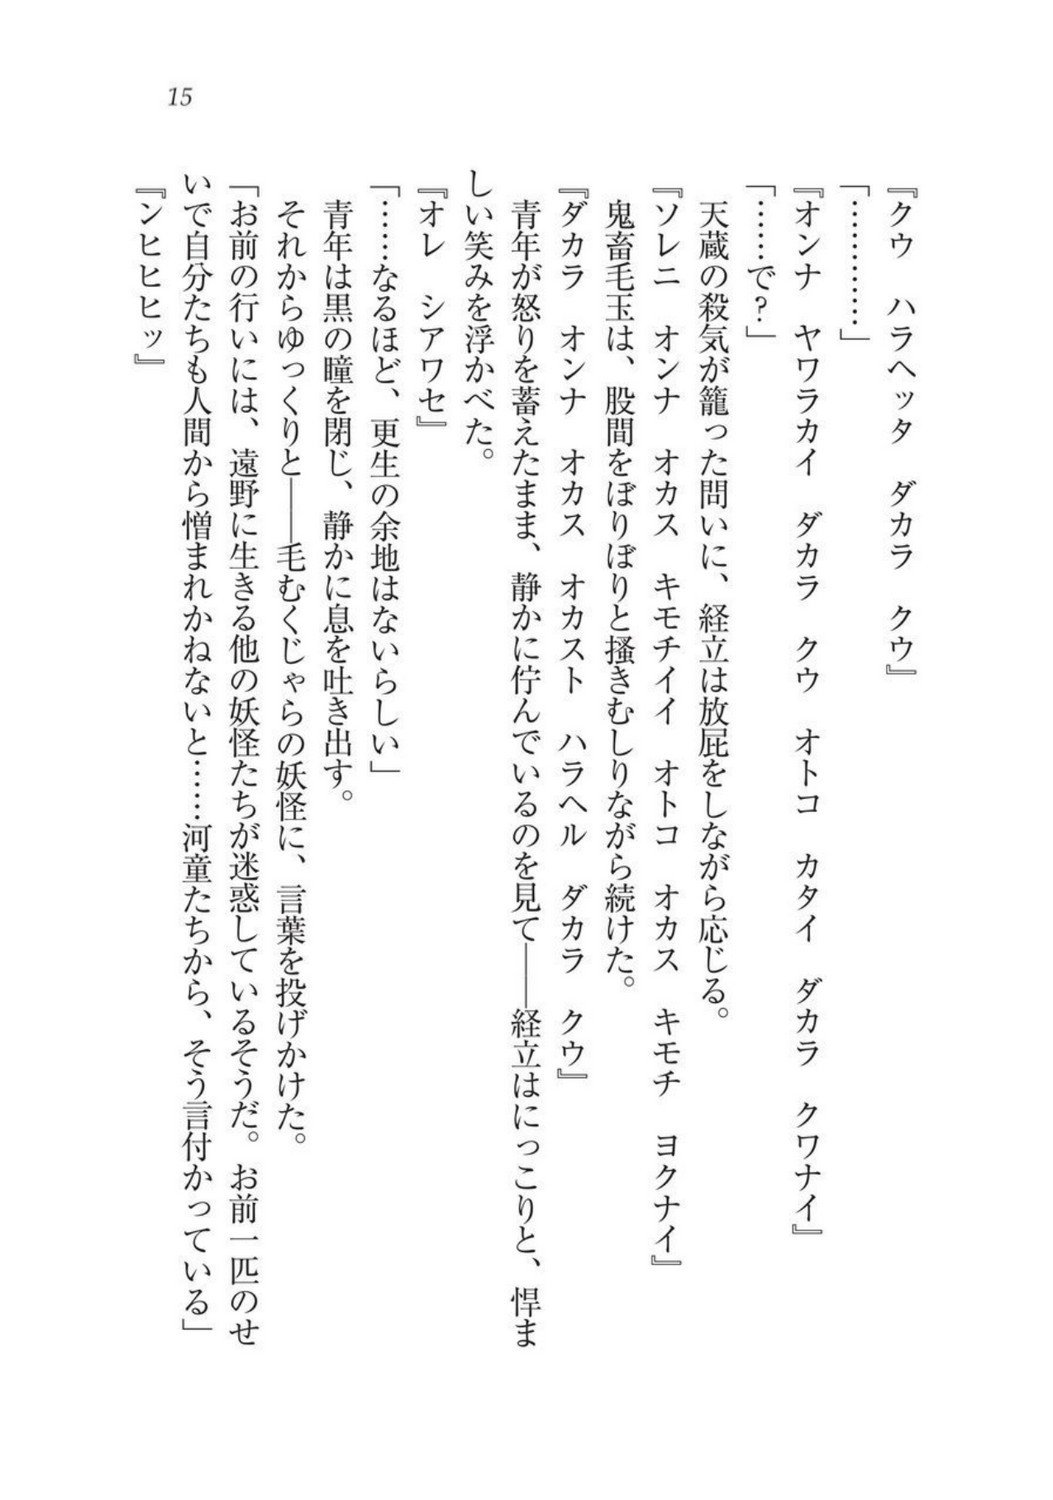 15
『クウ　ハラヘッタ　ダカラ　クウ』
「…………」
『オンナ　ヤワラカイ　ダカラ　クウ　オトコ　カタイ　ダカラ　クワナイ』
「……で？」
　天蔵の殺気が籠った問いに、経立は放屁をしながら応じる。
『ソレニ　オンナ　オカス　キモチイイ　オトコ　オカス　キモチ　ヨクナイ』
　鬼畜毛玉は、股間をぼりぼりと掻きむしりながら続けた。
『ダカラ　オンナ　オカス　オカスト　ハラヘル　ダカラ　クウ』
　青年が怒りを蓄えたまま、静かに佇んでいるのを見て――経立はにっこりと、悍ま
しい笑みを浮かべた。
『オレ　シアワセ』
「……なるほど、更生の余地はないらしい」
　青年は黒の瞳を閉じ、静かに息を吐き出す。
　それからゆっくりと――毛むくじゃらの妖怪に、言葉を投げかけた。
「お前の行いには、遠野に生きる他の妖怪たちが迷惑しているそうだ。お前一匹のせ
いで自分たちも人間から憎まれかねないと……河童たちから、そう言付かっている」
『ンヒヒヒッ』